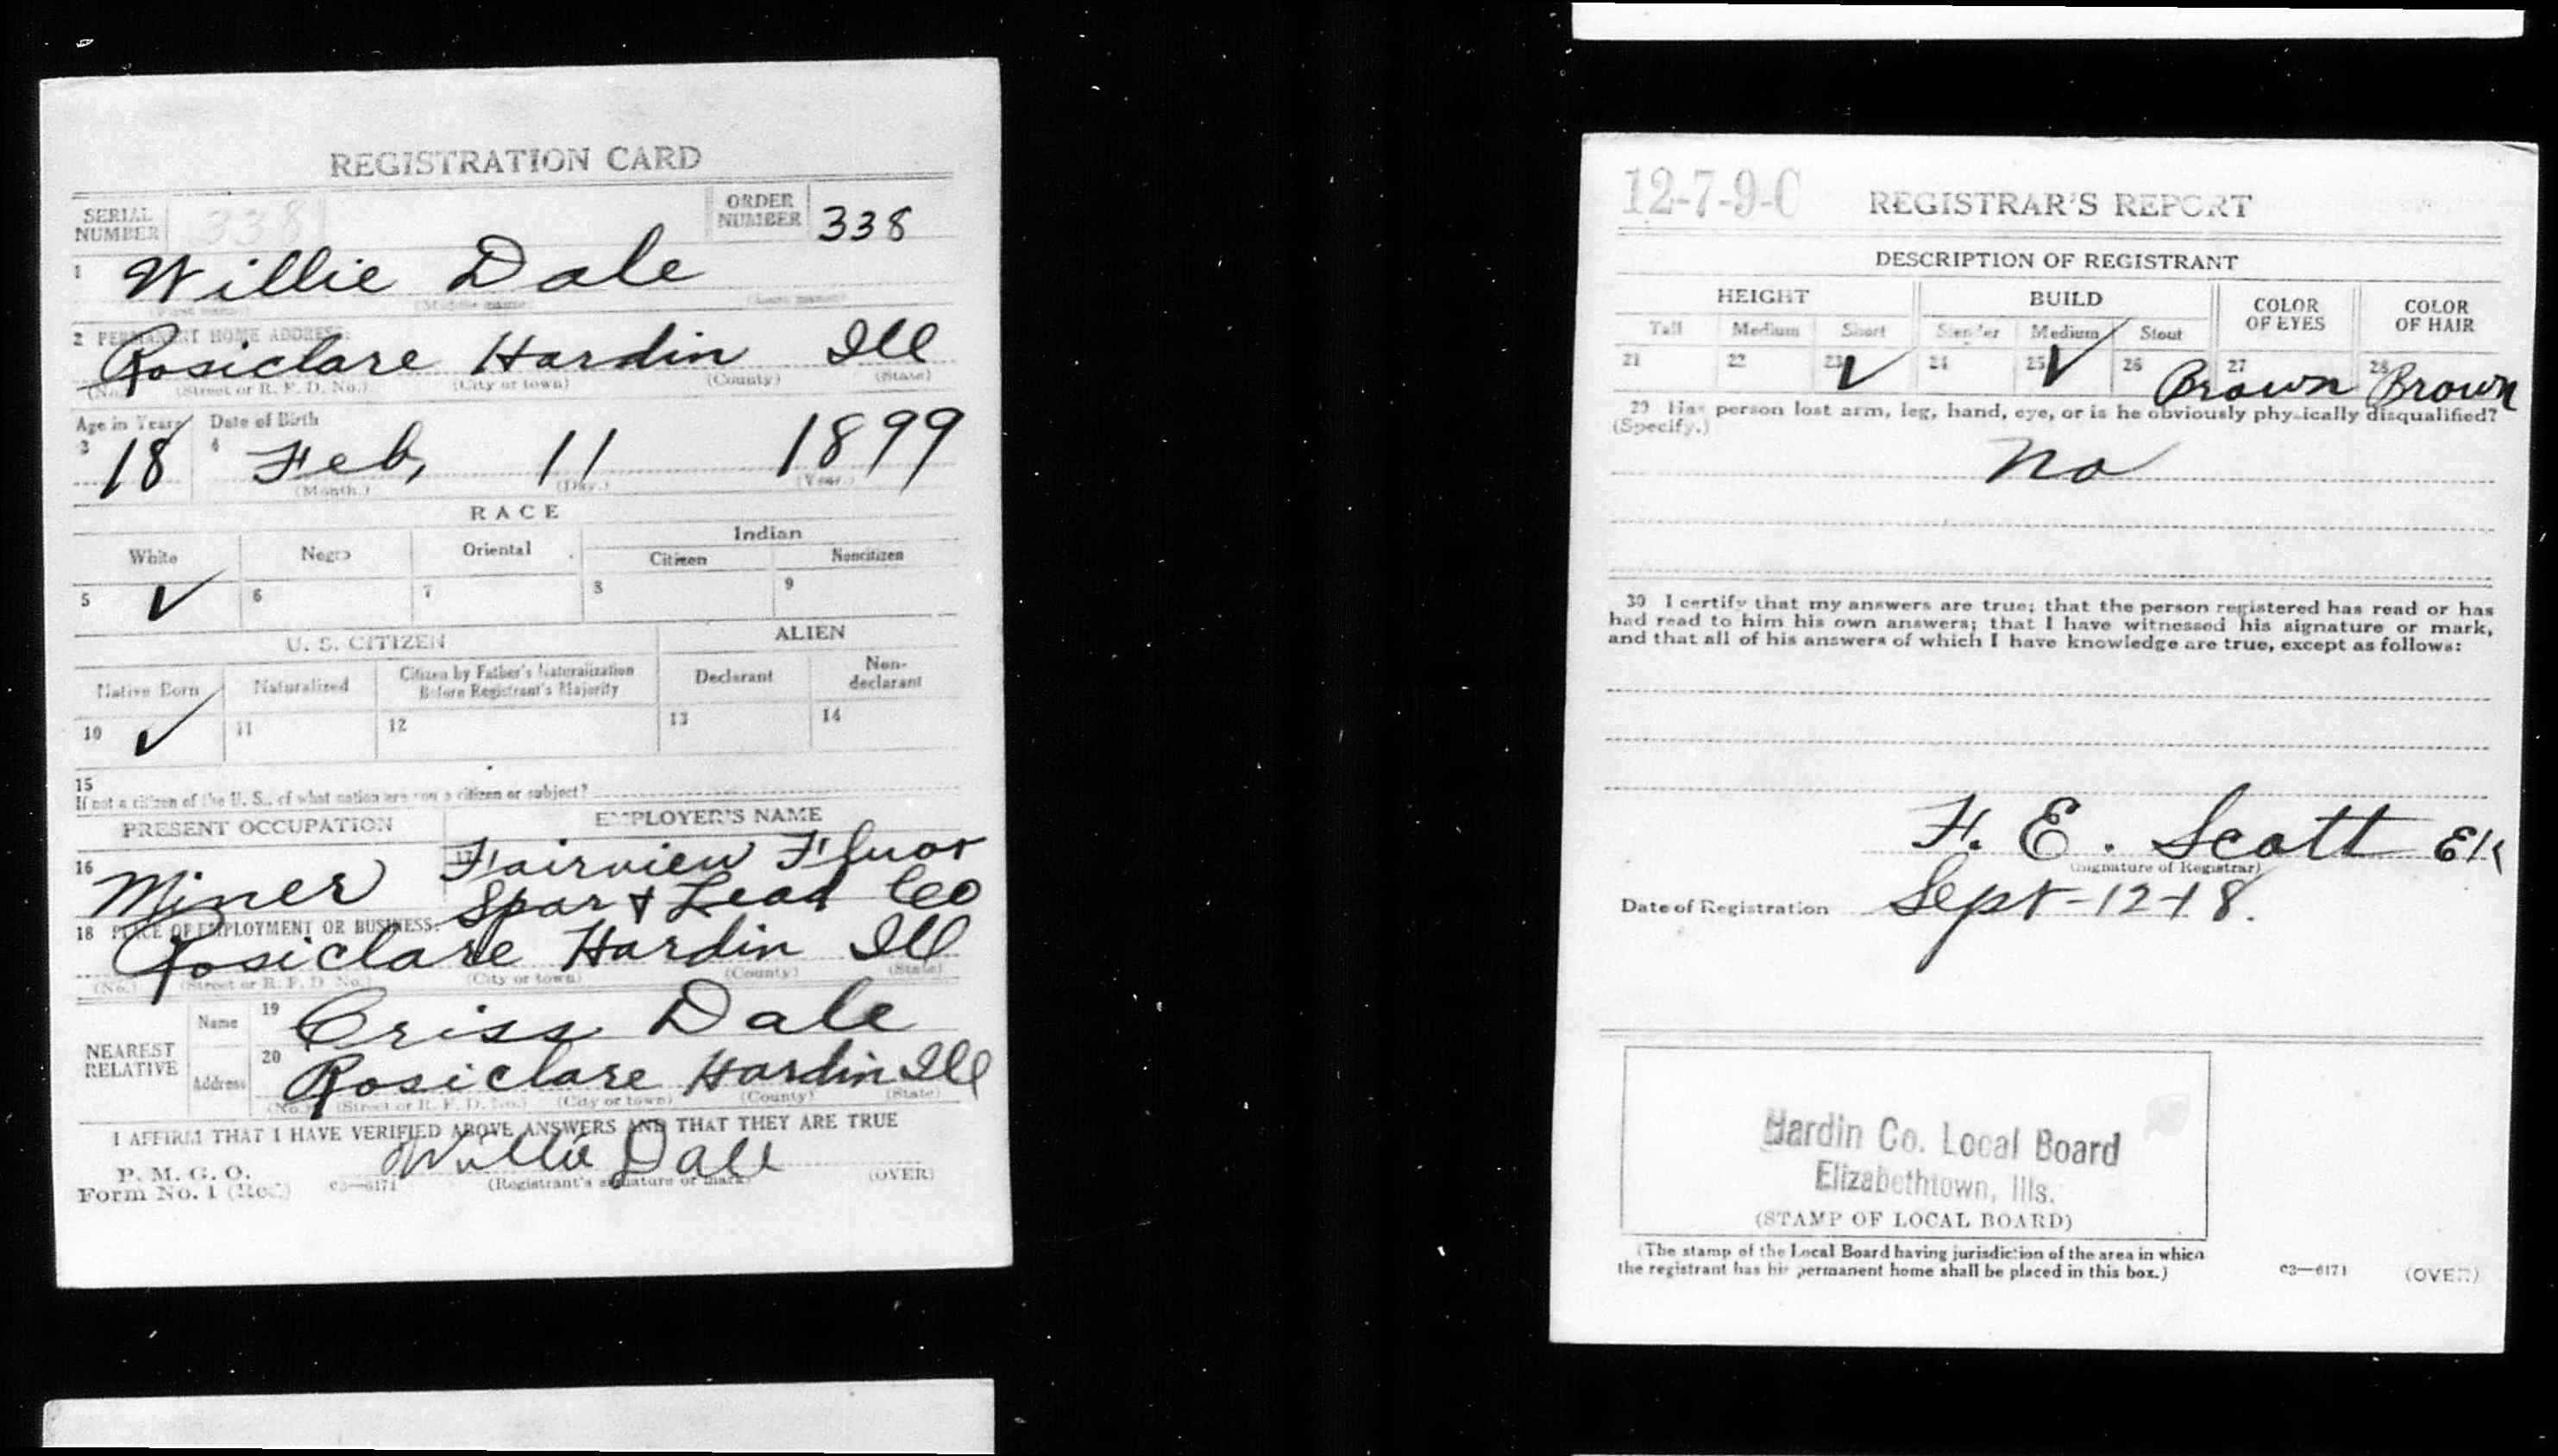 REGISTRATION CARD
SERIAL NUMBER 338 ORDER NUMBER 338
1 Willie Dale
(First name) (Middle name) (Last name)
2 PERMANENT HOME ADDRESS:
Rosiclare Hardin Ill
(No.) (Street or R. F. D. No.) (City or town) (County) (State)
Age in Years Date of Birth
3 18 4 Feb, 11 1899
(Month.) (Day.) (Year.)
RACE
White Negro Oriental Indian
Citizen Noncitizen
5 ✓ 6 7 8 9
U. S. CITIZEN ALIEN
Native Born Naturalized Citizen by Father's Naturalization Before Registrant's Majority Declarant Non-declarant
10 ✓ 11 12 13 14
15
If not a citizen of the U. S., of what nation are you a citizen or subject?
PRESENT OCCUPATION EMPLOYER'S NAME
16 Miner 17 Fairview Fluor
Spar & Lead Co
18 PLACE OF EMPLOYMENT OR BUSINESS:
Rosiclare Hardin Ill
(No.) (Street or R. F. D. No.) (City or town) (County) (State)
NEAREST RELATIVE
Name 19 Criss Dale
Address 20 Rosiclare Hardin Ill
(No.) (Street or R. F. D. No.) (City or town) (County) (State)
I AFFIRM THAT I HAVE VERIFIED ABOVE ANSWERS AND THAT THEY ARE TRUE
P. M. G. O.
Form No. 1 (Red) 03—6171 Willie Dale (OVER)
(Registrant's signature or mark)
12-7-9-C REGISTRAR'S REPORT
DESCRIPTION OF REGISTRANT
HEIGHT BUILD COLOR OF EYES COLOR OF HAIR
Tall Medium Short Slender Medium Stout
21 22 23 ✓ 24 25 ✓ 26 27 Brown 28 Brown
29 Has person lost arm, leg, hand, eye, or is he obviously physically disqualified?
(Specify.)
No
30 I certify that my answers are true; that the person registered has read or has
had read to him his own answers; that I have witnessed his signature or mark,
and that all of his answers of which I have knowledge are true, except as follows:
F. E. Scott
(Signature of Registrar)
Date of Registration Sept-12-18.
Hardin Co. Local Board
Elizabethtown, Ills.
(STAMP OF LOCAL BOARD)
(The stamp of the Local Board having jurisdiction of the area in which
the registrant has his permanent home shall be placed in this box.)
03—6171 (OVER)